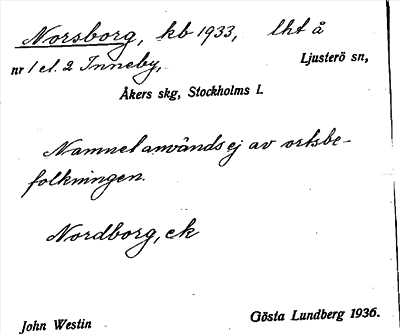 Norsborg, kb 1933, lht å
nr 1 el. 2 Inneby, Ljusterö sn,
Åkers skg, Stockholms l.
Namnet användes ej av ortsbe-
folkningen.
Nordborg, ek
John Westin Gösta Lundberg 1936.